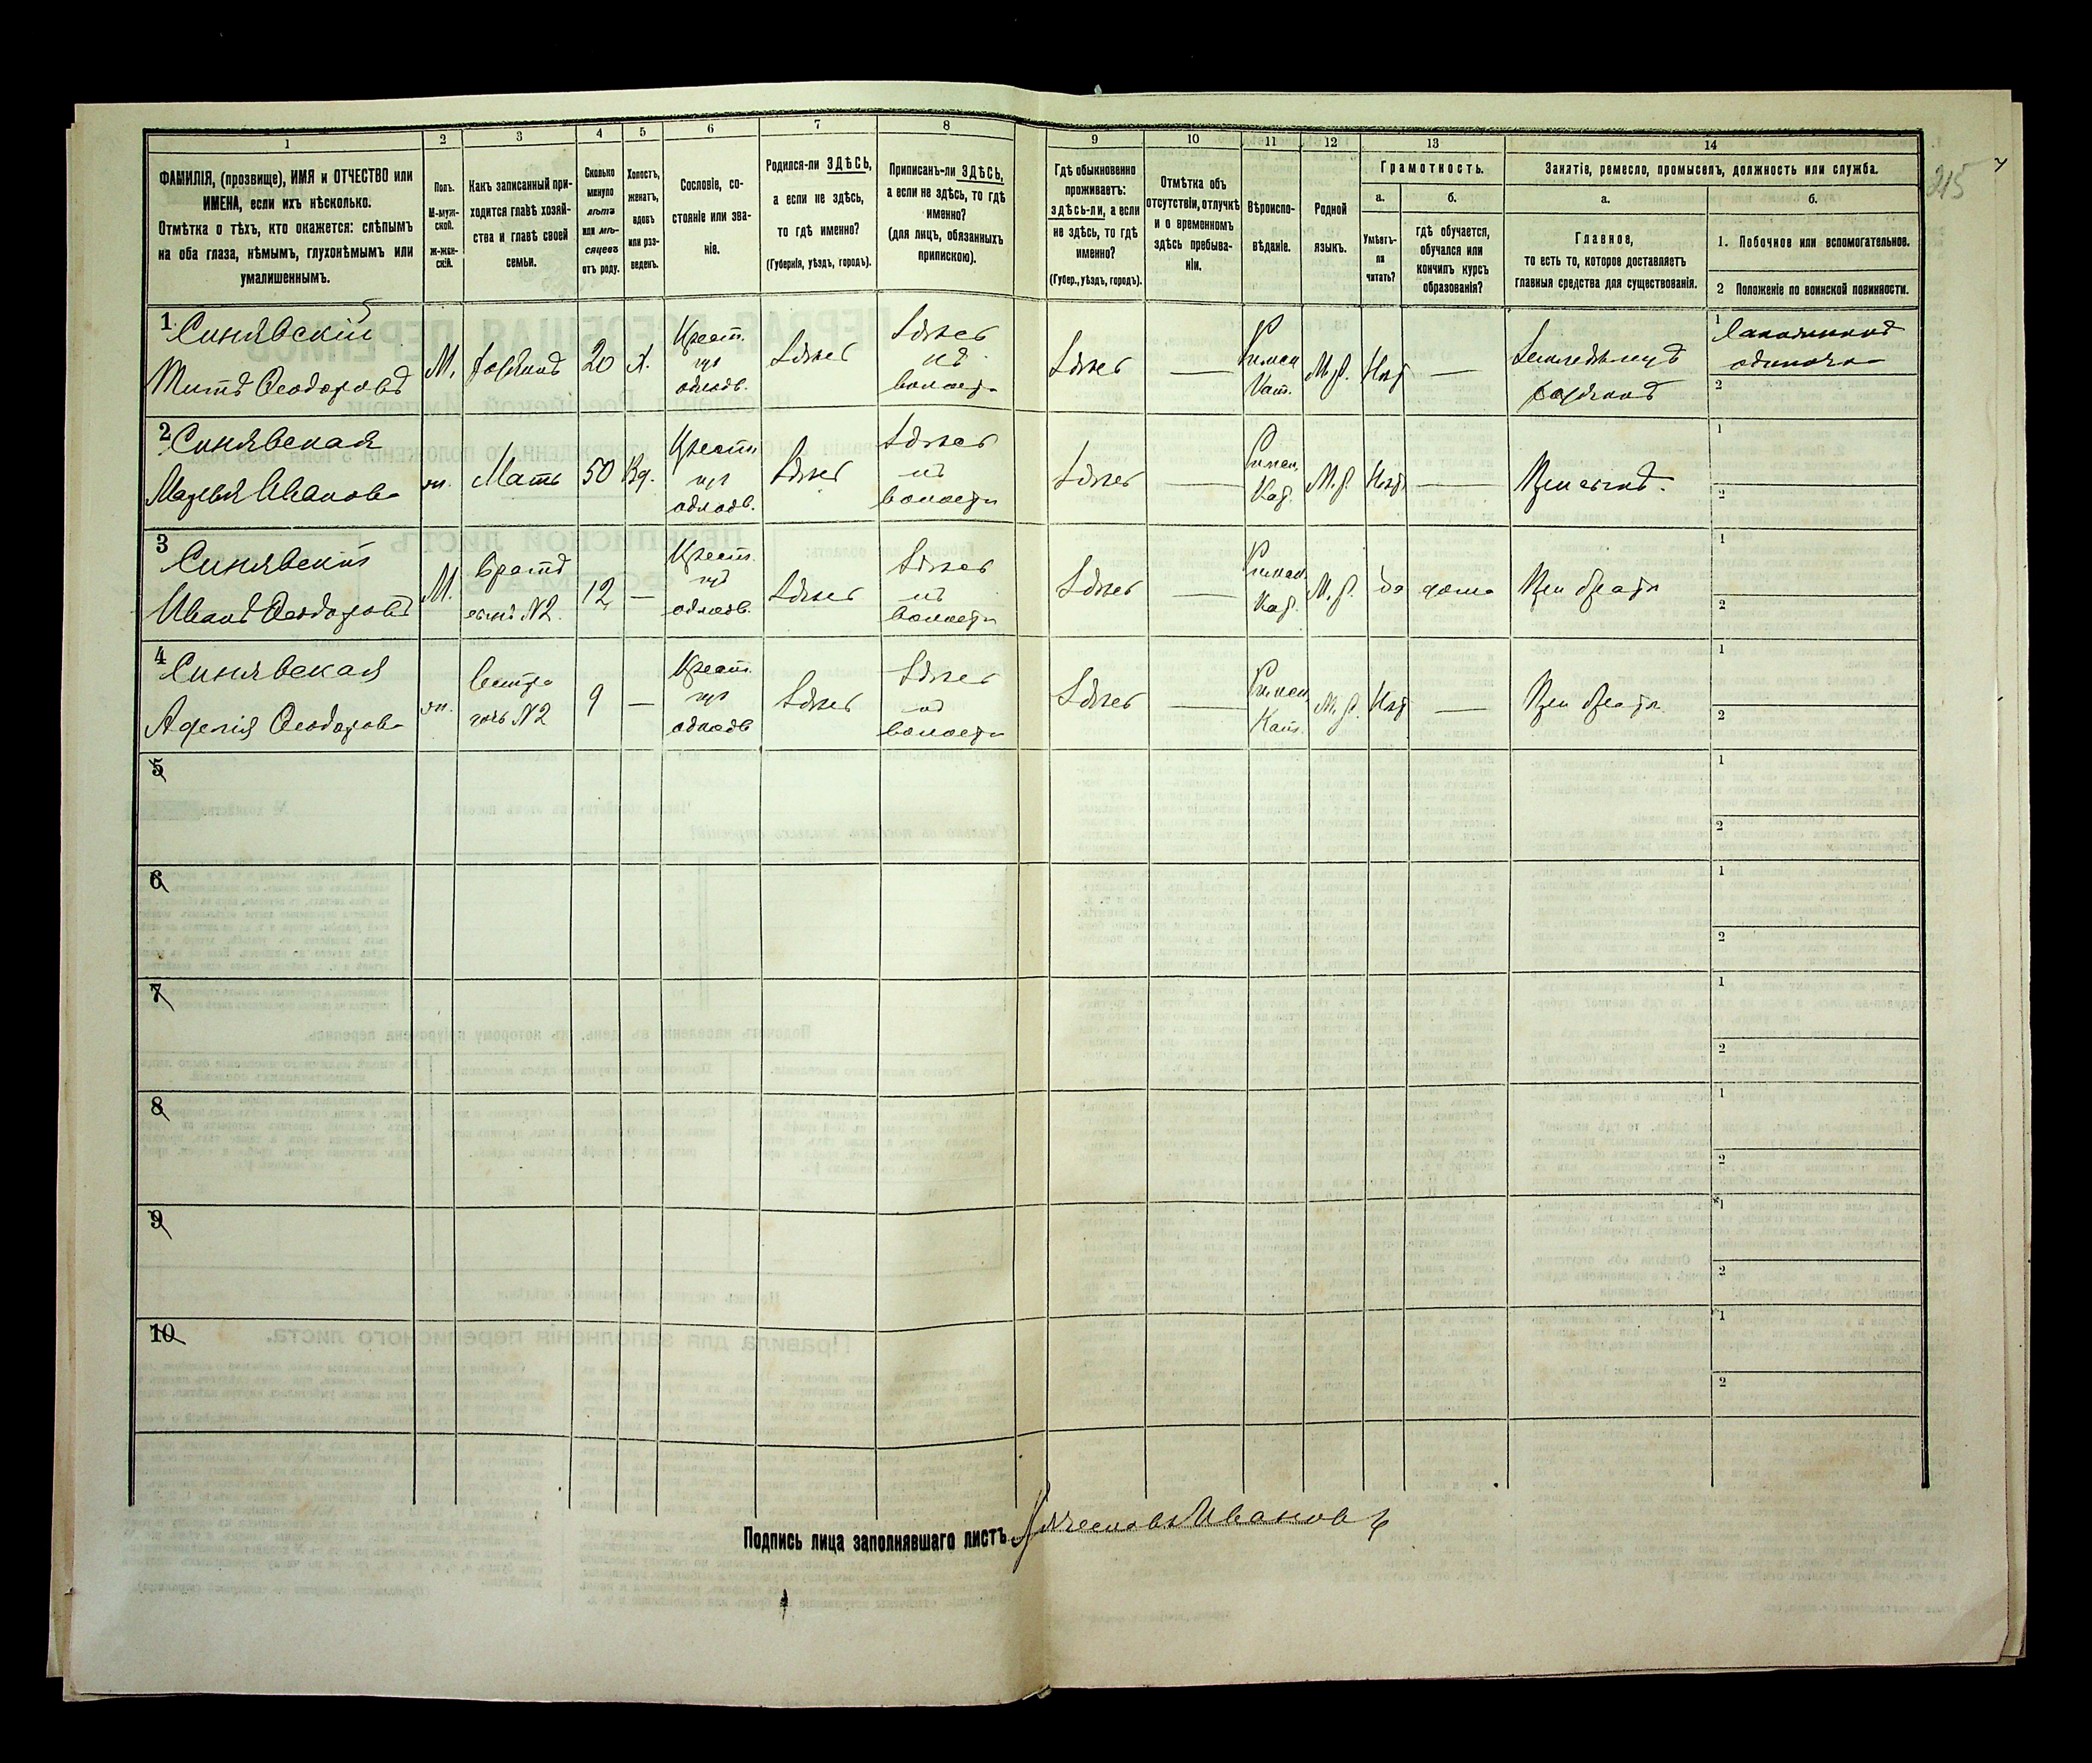 1
2
3
4
5
6
7
8
9
10
11
12
13
14
ФАМИЛІЯ, (прозвище), ИМЯ и ОТЧЕСТВО или
ИМЕНА, если ихъ нѣсколько.
Отмѣтка о тѣхъ, кто окажется: слѣпымъ
на оба глаза, нѣмымъ, глухонѣмымъ или
умалишеннымъ.
Полъ.
М-муж-
ской.
ж-жен-
скій.
Какъ записанный при-
ходится главѣ хозяй-
ства и главѣ своей
семьи.
Сколько
минуло
лѣтъ
или мѣ-
сяцевъ
отъ роду.
Холостъ,
женатъ,
вдовъ
или раз-
веденъ.
Сословіе, со-
стояніе или зва-
ніе.
Родился-ли ЗДѢСЬ,
а если не здѣсь,
то гдѣ именно?
(Губернія, уѣздъ, городъ).
Приписанъ-ли ЗДѢСЬ,
а если не здѣсь, то гдѣ
именно?
(для лицъ, обязанныхъ
припискою).
Гдѣ обыкновенно
проживаетъ:
здѣсь-ли, а если
не здѣсь, то гдѣ
именно?
(Губер., уѣздъ, городъ).
Отмѣтка объ
отсутствіи, отлучкѣ
и о временномъ
здѣсь пребыва-
ніи.
Вѣроиспо-
вѣданіе.
Родной
языкъ.
Грамотность.
а.
Умѣетъ-
ли
читать?
б.
гдѣ обучается,
обучался или
кончилъ курсъ
образованія?
Занятіе, ремесло, промыселъ, должность или служба.
а.
Главное,
то есть то, которое доставляетъ
главныя средства для существованія.
б.
1. Побочное или вспомогательное.
2 Положеніе по воинской повинности.
215
1 Синявскій
Титъ Ѳеодоровъ
М.
хозяинъ
20
Х.
Крест.
изъ
однодв.
Здѣсь
Здѣсь
въ
волости
Здѣсь
—
Римск.
Кат.
М. р.
Нѣтъ
—
Земледѣлецъ
хозяинъ
1
2
2 Синявская
Марья Иванова
ж.
Мать
50
Вд.
Крестн
изъ
однодв.
Здѣсь
Здѣсь
въ
волости
Здѣсь
—
Римск.
Кат.
М. р.
Нѣтъ
—
При сынѣ.
1
2
3 Синявскій
Иванъ Ѳеодоровъ
М.
Братъ
сынъ N2.
12
—
Крест.
изъ
однодв.
Здѣсь
Здѣсь
въ
волости
Здѣсь
—
Римск.
Кат.
М. р.
да
дома
При братѣ
1
2
4 Синявская
Аделія Ѳеодорова
ж.
Сестра
дочь N2
9
—
Крест.
изъ
однодв
Здѣсь
Здѣсь
въ
волости
Здѣсь
—
Римск.
Кат.
М. р.
Нѣтъ
—
При братѣ
1
2
5
1
2
6
1
2
7
1
2
8
1
2
9
1
2
10
1
2
Подпись лица заполнявшаго листъ